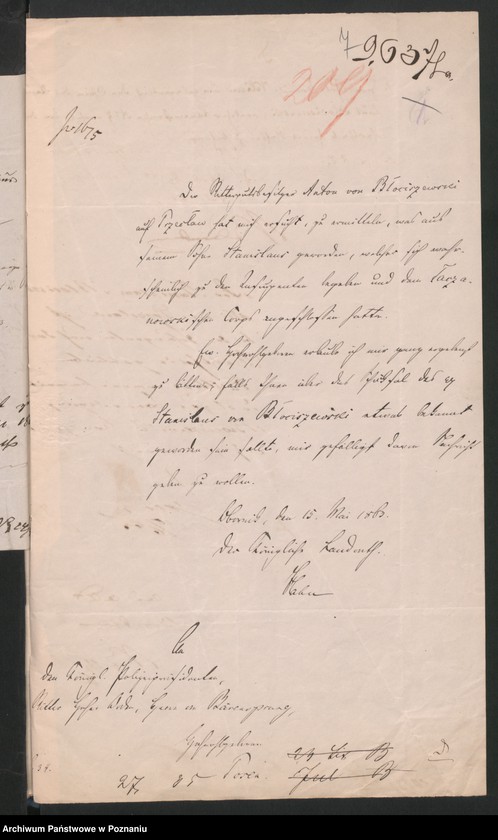 7963/6a.
209
No 1675
Der Rittergutsbesitzer Anton von Błociszewski
auf Przecław hat mich ersucht, zu ermitteln, was aus
seinem Sohne Stanislaus geworden, welcher sich wahr-
scheinlich zu den Insurgenten begeben und dem Tacza-
nowskischen Corps angeschlossen hatte.
Ew. Hochwohlgeboren erlaube ich mir ganz ergebenst
zu bitten, falls Ihnen über das Schicksal des
Stanislaus von Błociszewski etwas bekannt
geworden sein sollte, mir gefälligst davon Nachricht
geben zu wollen.
Obornik, den 15. Mai 1863.
Der Königliche Landrath.
An
den Königl. Polizeipräsidenten,
Ritter hoher Orden, Herrn von Bärensprung,
Hochwohlgeboren
Posen.
27
85
Archiwum Państwowe w Poznaniu
Archiwum Państwowe w Poznaniu